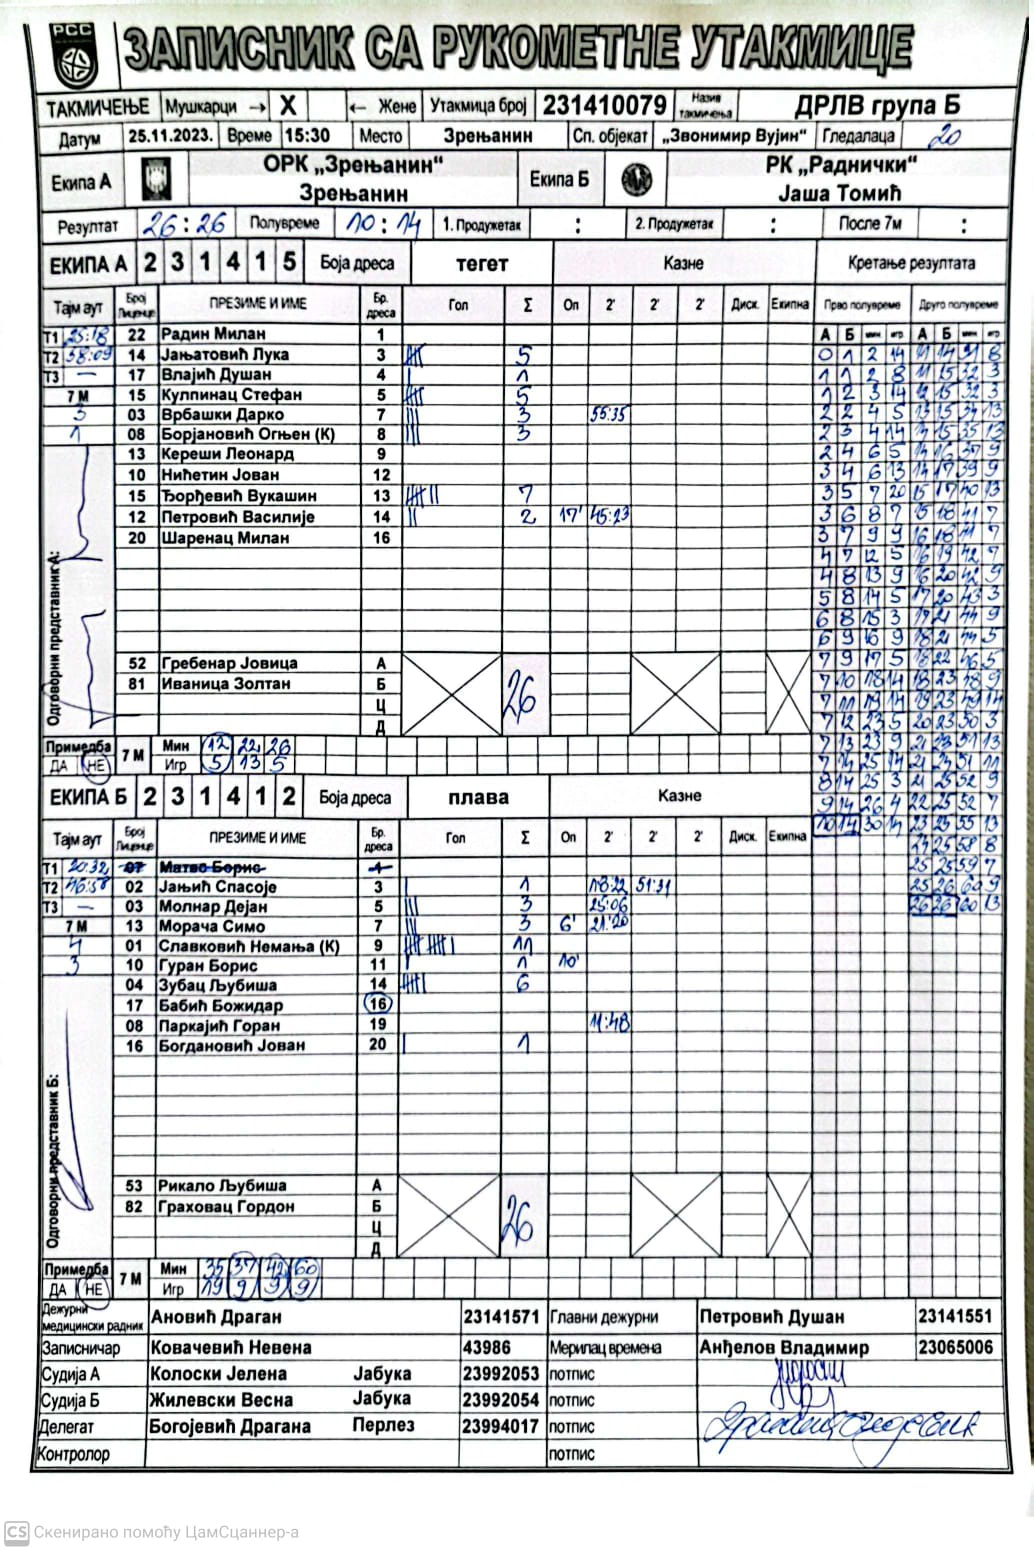 РСС ЗАПИСНИК СА РУКОМЕТНЕ УТАКМИЦЕ
ТАКМИЧЕЊЕ Мушкарци → X ← Жене Утакмица број 231410079 Назив такмичења ДРЛВ група Б
Датум 25.11.2023. Време 15:30 Место Зрењанин Сп. објекат „Звонимир Вујин“ Гледалаца 20
Екипа А ОРК „Зрењанин“ Зрењанин Екипа Б РК „Раднички“ Јаша Томић
Резултат 26:26 Полувреме 10:14 1. Продужетак : 2. Продужетак : После 7м :
ЕКИПА А 2 3 1 4 1 5 Боја дреса тегет Казне Кретање резултата
Тајм аут Број Лиценце ПРЕЗИМЕ И ИМЕ Бр. дреса Гол Σ Оп 2' 2' 2' Диск. Екипна Прво полувреме Друго полувреме
А Б мин игр А Б мин игр
Т1 25:18 22 Радин Милан 1
Т2 58:09 14 Јањатовић Лука 3 5 0 1 2 14 11 14 31 8
Т3 — 17 Влајић Душан 4 1 1 1 2 8 11 15 32 3
7 М 15 Кулпинац Стефан 5 5 1 2 3 14 12 15 32 3
3 03 Врбашки Дарко 7 3 55:35 2 2 4 5 13 15 34 13
1 08 Борјановић Огњен (К) 8 3 2 3 4 14 14 15 35 13
13 Кереши Леонард 9 2 4 6 5 14 16 37 9
10 Нићетин Јован 12 3 4 6 13 14 17 39 9
15 Ђорђевић Вукашин 13 7 3 5 7 20 15 17 40 13
12 Петровић Василије 14 2 17' 45:23 3 6 8 7 15 18 41 7
20 Шаренац Милан 16 3 7 9 9 16 18 41 7
4 7 12 5 16 19 42 7
4 8 13 9 16 20 42 9
5 8 14 5 17 20 43 3
6 8 15 3 17 21 44 9
6 9 16 9 18 21 44 5
Одговорни представник А:
52 Гребенар Јовица А 26 7 9 17 5 18 22 46 5
81 Иваница Золтан Б 7 10 18 14 18 23 48 9
Ц 7 11 19 14 19 23 49 14
Д 7 12 23 5 20 23 50 3
Примедба 7 М Мин 12 22 26 7 13 23 9 21 23 51 13
ДА НЕ Игр 5 13 5 7 14 25 14 21 24 51 11
ЕКИПА Б 2 3 1 4 1 2 Боја дреса плава Казне 8 14 25 3 21 25 52 9
9 14 26 4 22 25 52 7
Тајм аут Број Лиценце ПРЕЗИМЕ И ИМЕ Бр. дреса Гол Σ Оп 2' 2' 2' Диск. Екипна 10 14 30 14 23 25 55 13
24 25 58 8
Т1 20:32 07 Матес Борис 1 25 25 59 7
Т2 46:58 02 Јањић Спасоје 3 1 18:22 51:31 25 26 60 9
Т3 — 03 Молнар Дејан 5 3 25:06 26 26 60 13
7 М 13 Морача Симо 7 3 6' 21:20
4 01 Славковић Немања (К) 9 11
3 10 Гуран Борис 11 1 10'
04 Зубац Љубиша 14 6
17 Бабић Божидар 16
08 Паркајић Горан 19 11:48
16 Богдановић Јован 20 1
Одговорни представник Б:
53 Рикало Љубиша А 26
82 Граховац Гордон Б
Ц
Д
Примедба 7 М Мин 35 37 42 60
ДА НЕ Игр 19 9 9 9
Дежурни медицински радник Ановић Драган 23141571 Главни дежурни Петровић Душан 23141551
Записничар Ковачевић Невена 43986 Мерилац времена Анђелов Владимир 23065006
Судија А Колоски Јелена Јабука 23992053 потпис
Судија Б Жилевски Весна Јабука 23992054 потпис
Делегат Богојевић Драгана Перлез 23994017 потпис
Контролор потпис
CS Скенирано помоћу ЦамСцаннер-а